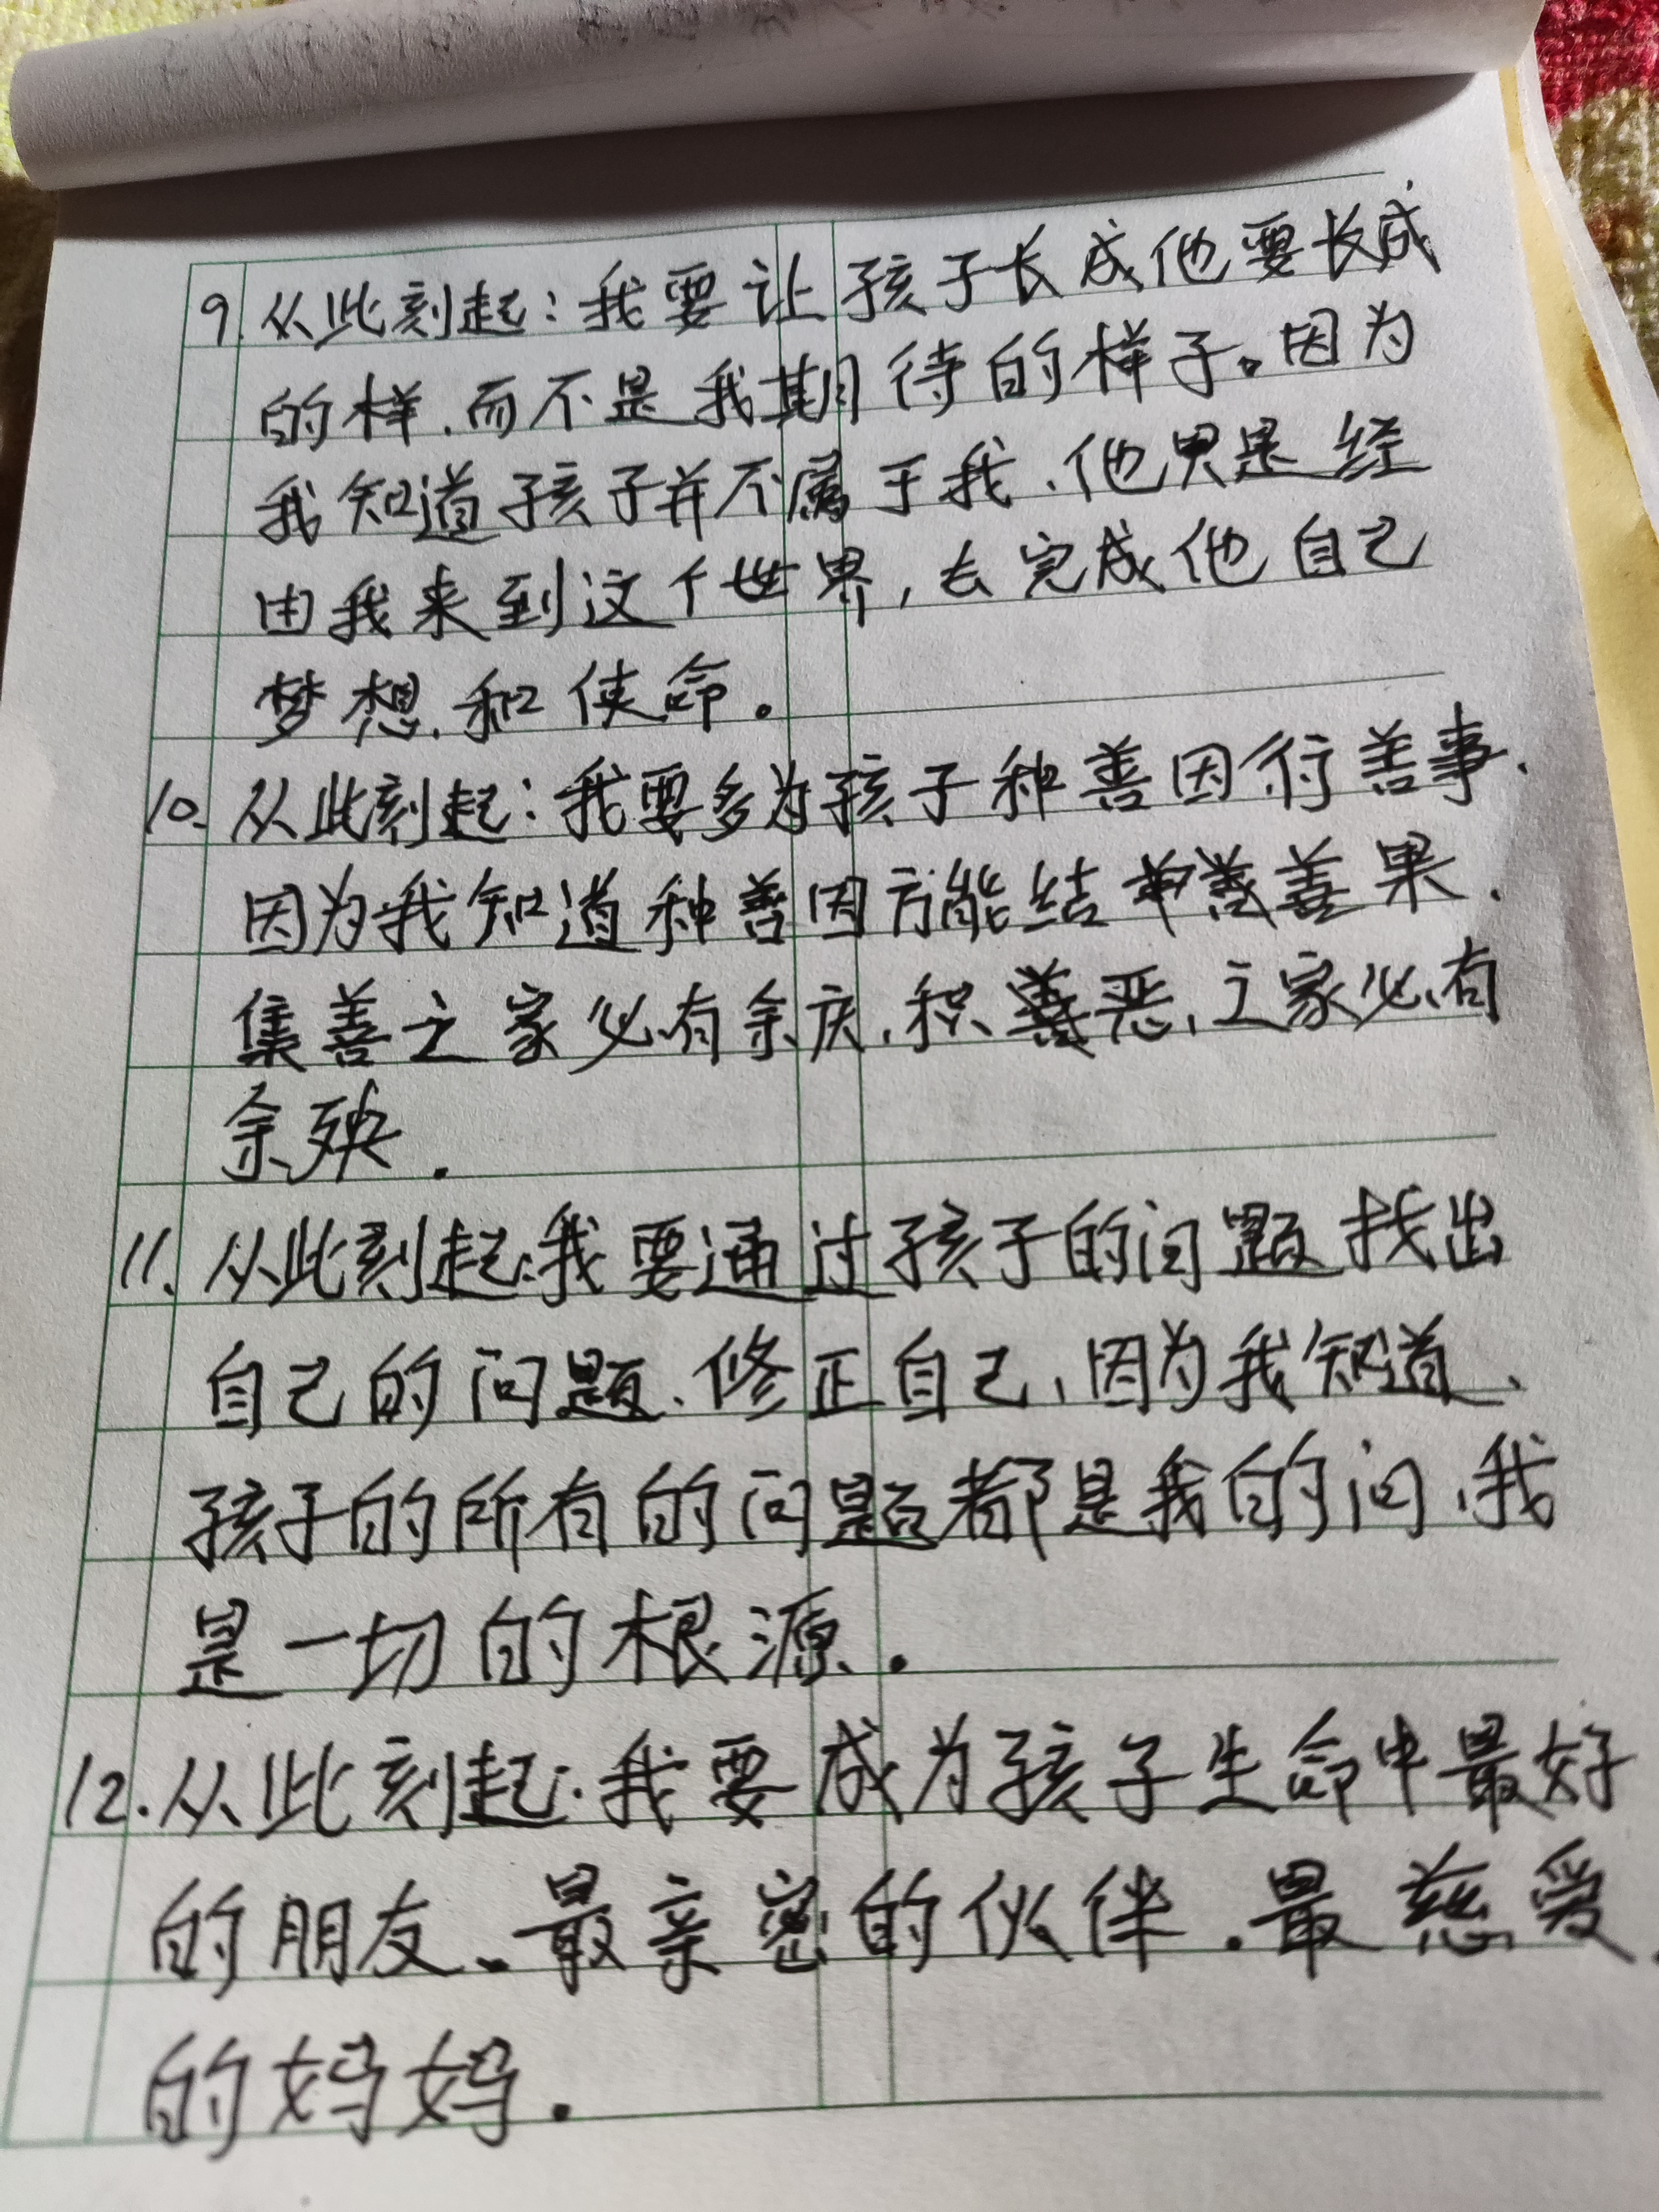 9.从此刻起:我要让孩子长成他要长成
的样.而不是我期待的样子。因为
我知道孩子并不属于我、他只是经
由我来到这个世界,去完成他自己
梦想.和使命。
10.从此刻起:我要多为孩子种善因行善事.
因为我知道种善因方能结善果.
集善之家必有余庆.积恶、之家必有
余殃.
11.从此刻起:我要通过孩子的问题找出
自己的问题.修正自己、因为我知道、
孩子的所有的问题都是我的问、我
是一切的根源.
12.从此刻起:我要成为孩子生命中最好
的朋友、最亲密的伙伴.最慈爱
的妈妈.